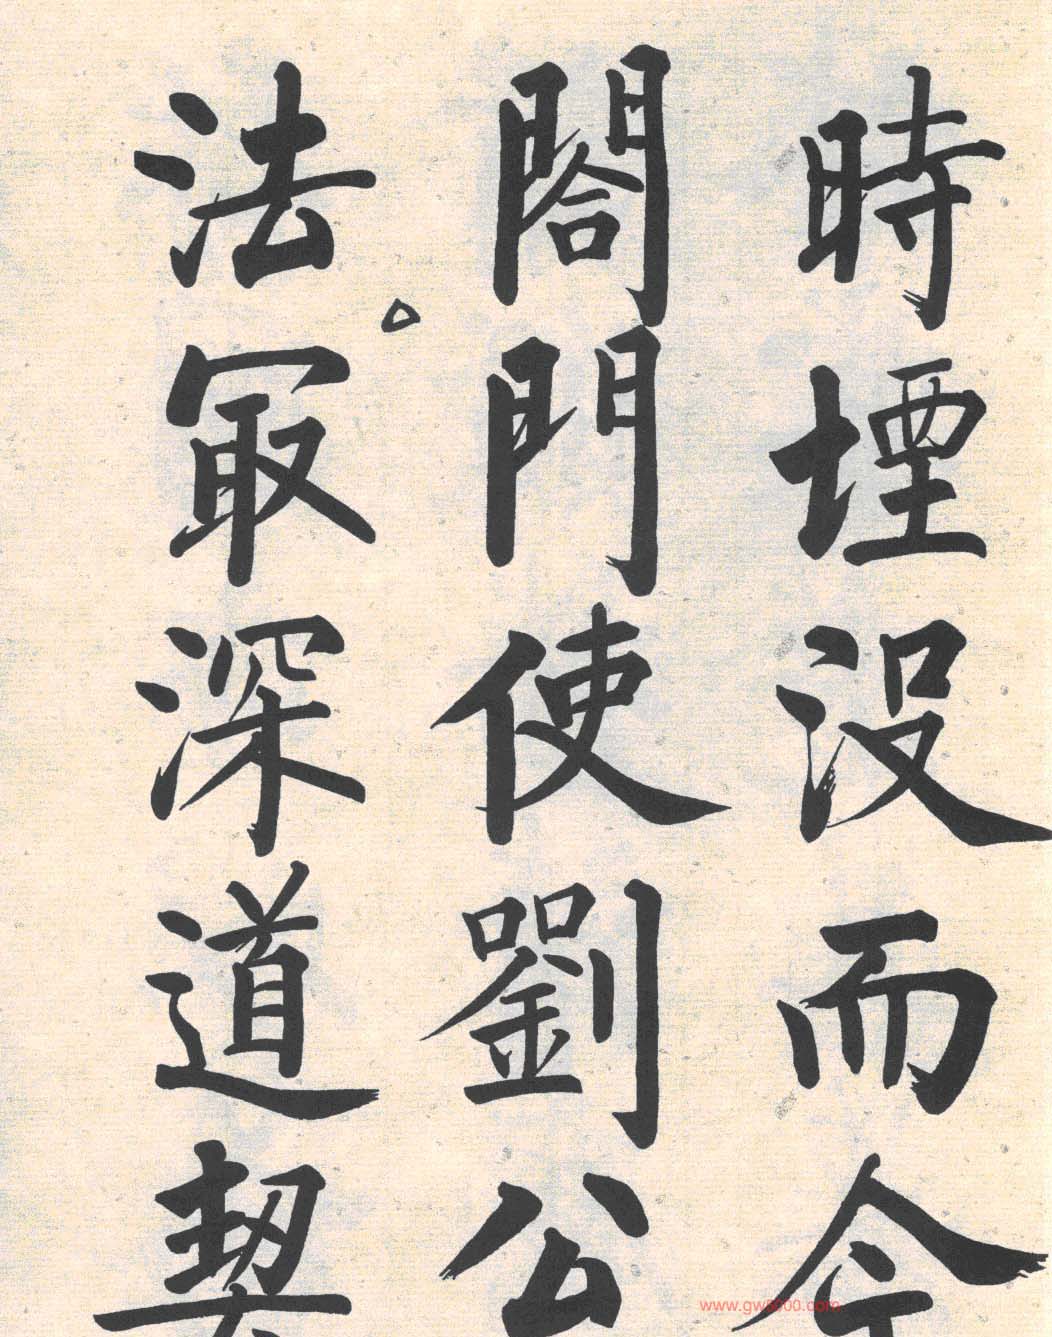 時堙没而令
閤門使劉公
法冣深道契
www.gw5000.com